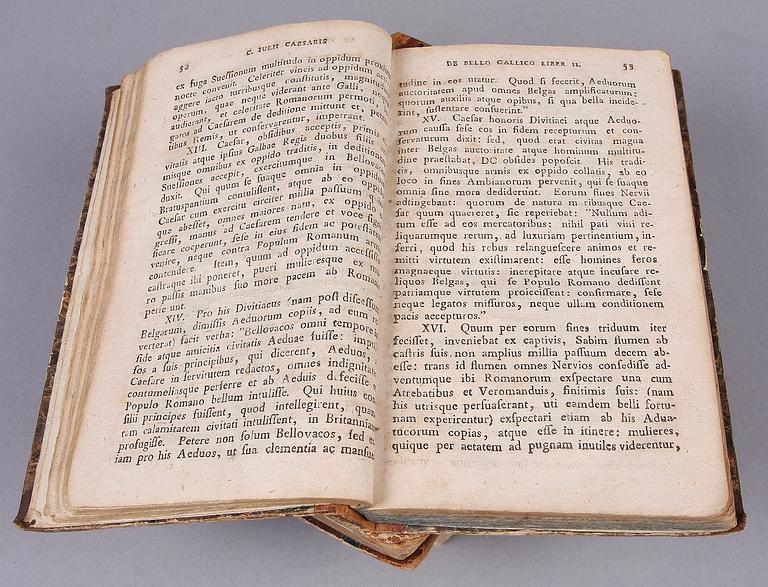 C. IULII CAESARIS
ex fuga Suessionum multitudo in oppidum proxima
nocte convenit. Celeriter vineis ad oppidum actis,
aggere iacto turribusque constitutis, magnitudine
operum, quae neque viderant ante Galli, neque
audierant, et celeritate Romanorum permoti,
gatos ad Caesarem de deditione mittunt et, peten-
tibus Remis, ut conservarentur, impetrant.
XIII. Caesar, obsidibus acceptis, primis
vitatis atque ipsius Galbae Regis duobus filiis,
misque omnibus ex oppido traditis, in deditionem
Suessiones accepit, exercitumque in Bellovacos
duxit. Qui quum se suaque omnia in oppidum
Bratuspantium contulissent, atque ab eo oppido
Caesar cum exercitu circiter millia passuum
que abesset, omnes maiores natu, ex oppido
gressi, manus ad Caesarem tendere et voce signi-
ficare coeperunt, sese in eius fidem ac potestatem
venire, neque contra Populum Romanum armis
contendere. Item, quum ad oppidum accessisset
castraque ibi poneret, pueri mulieresque ex mu-
ro passis manibus suo more pacem ab Romanis
petierunt
XIV. Pro his Divitiacus (nam post discessum
Belgarum, dimissis Aeduorum copiis, ad eum re-
verterat) facit verba: "Bellovacos omni tempore in
fide atque amicitia civitatis Aeduae fuisse: impul-
sos a suis principibus, qui dicerent, Aeduos, a
Caesare in servitutem redactos, omnes indignitates
contumeliasque perferre et ab Aeduis defecisse et
Populo Romano bellum intulisse. Qui huius con-
silii principes fuissent, quod intellegerent, quan-
tam calamitatem civitati intulissent, in Britanniam
profugisse. Petere non solum Bellovacos, sed et-
iam pro his Aeduos, ut sua clementia ac mansue-
DE BELLO GALLICO LIBER II. 53
tudine in eos utatur. Quod si fecerit, Aeduorum
auctoritatem apud omnes Belgas amplificaturum:
quorum auxiliis atque opibus, si qua bella incide-
rint, sustentare consuerint."
XV. Caesar honoris Divitiaci atque Aeduo-
rum caussa sese eos in fidem recepturum et con-
servaturum dixit: sed, quod erat civitas magna
inter Belgas auctoritate atque hominum multitu-
dine praestabat, DC obsides poposcit. His tradi-
tis, omnibusque armis ex oppido collatis, ab eo
loco in fines Ambianorum pervenit, qui se suaque
omnia sine mora dediderunt. Eorum fines Nervii
adtingebant: quorum de natura moribusque Cae-
sar quum quaereret, sic reperiebat: "Nullum adi-
tum esse ad eos mercatoribus: nihil pati vini re-
liquarumque rerum, ad luxuriam pertinentium, in-
ferri, quod his rebus relanguescere animos et re-
mitti virtutem existimarent: esse homines feros
magnaeque virtutis: increpitare atque incusare re-
liquos Belgas, qui se Populo Romano dedissent
patriamque virtutem proiecissent: confirmare, sese
neque legatos missuros, neque ullam conditionem
pacis accepturos."
XVI. Quum per eorum fines triduum iter
fecisset, inveniebat ex captivis, Sabim flumen ab
castris suis non amplius millia passuum decem ab-
esse: trans id flumen omnes Nervios consedisse ad-
ventumque ibi Romanorum exspectare una cum
Atrebatibus et Veromanduis, finitimis suis: (nam
his utrisque persuaserant, uti eamdem belli fortu-
nam experirentur) exspectari etiam ab his Adua-
tucorum copias, atque esse in itinere: mulieres,
quique per aetatem ad pugnam inutiles viderentur,